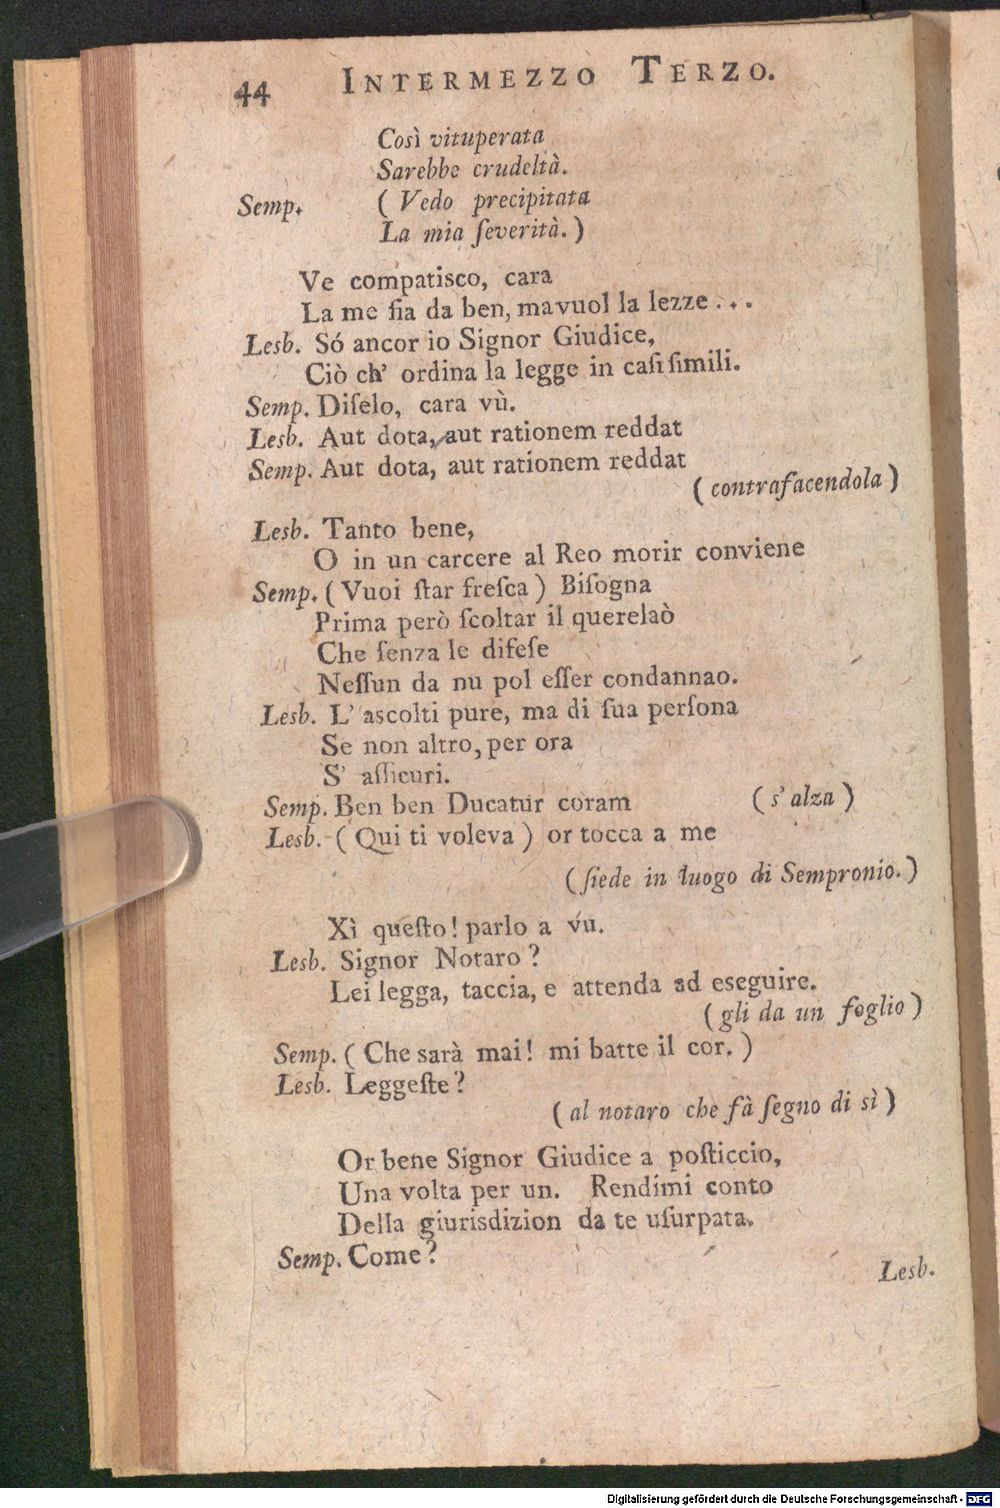 44 INTERMEZZO TERZO.
Così vituperata
Sarebbe crudeltà.
Semp. ( Vedo precipitata
La mia ſeverità. )
Ve compatisco, cara
La me ſia da ben, ma vuol la lezze . . .
Lesb. Só ancor io Signor Giudice,
Ciò ch' ordina la legge in caſi ſimili.
Semp. Diſelo, cara vù.
Lesb. Aut dota, aut rationem reddat
Semp. Aut dota, aut rationem reddat
( contrafacendola )
Lesb. Tanto bene,
O in un carcere al Reo morir conviene
Semp. ( Vuoi ſtar freſca ) Biſogna
Prima però ſcoltar il querelaò
Che ſenza le difeſe
Neſſun da nu pol eſſer condannao.
Lesb. L' ascolti pure, ma di ſua perſona
Se non altro, per ora
S' aſſicuri.
Semp. Ben ben Ducatur coram ( s' alza )
Lesb. ( Qui ti voleva ) or tocca a me
( ſiede in luogo di Sempronio. )
Xì queſto! parlo a vu.
Lesb. Signor Notaro?
Lei legga, taccia, e attenda ad eseguire.
( gli da un foglio )
Semp. ( Che sarà mai! mi batte il cor. )
Lesb. Leggeſte?
( al notaro che fà ſegno di sì )
Or bene Signor Giudice a poſticcio,
Una volta per un. Rendimi conto
Della giurisdizion da te uſurpata.
Semp. Come?
Lesb.
Digitalisierung gefördert durch die Deutsche Forschungsgemeinschaft - DFG